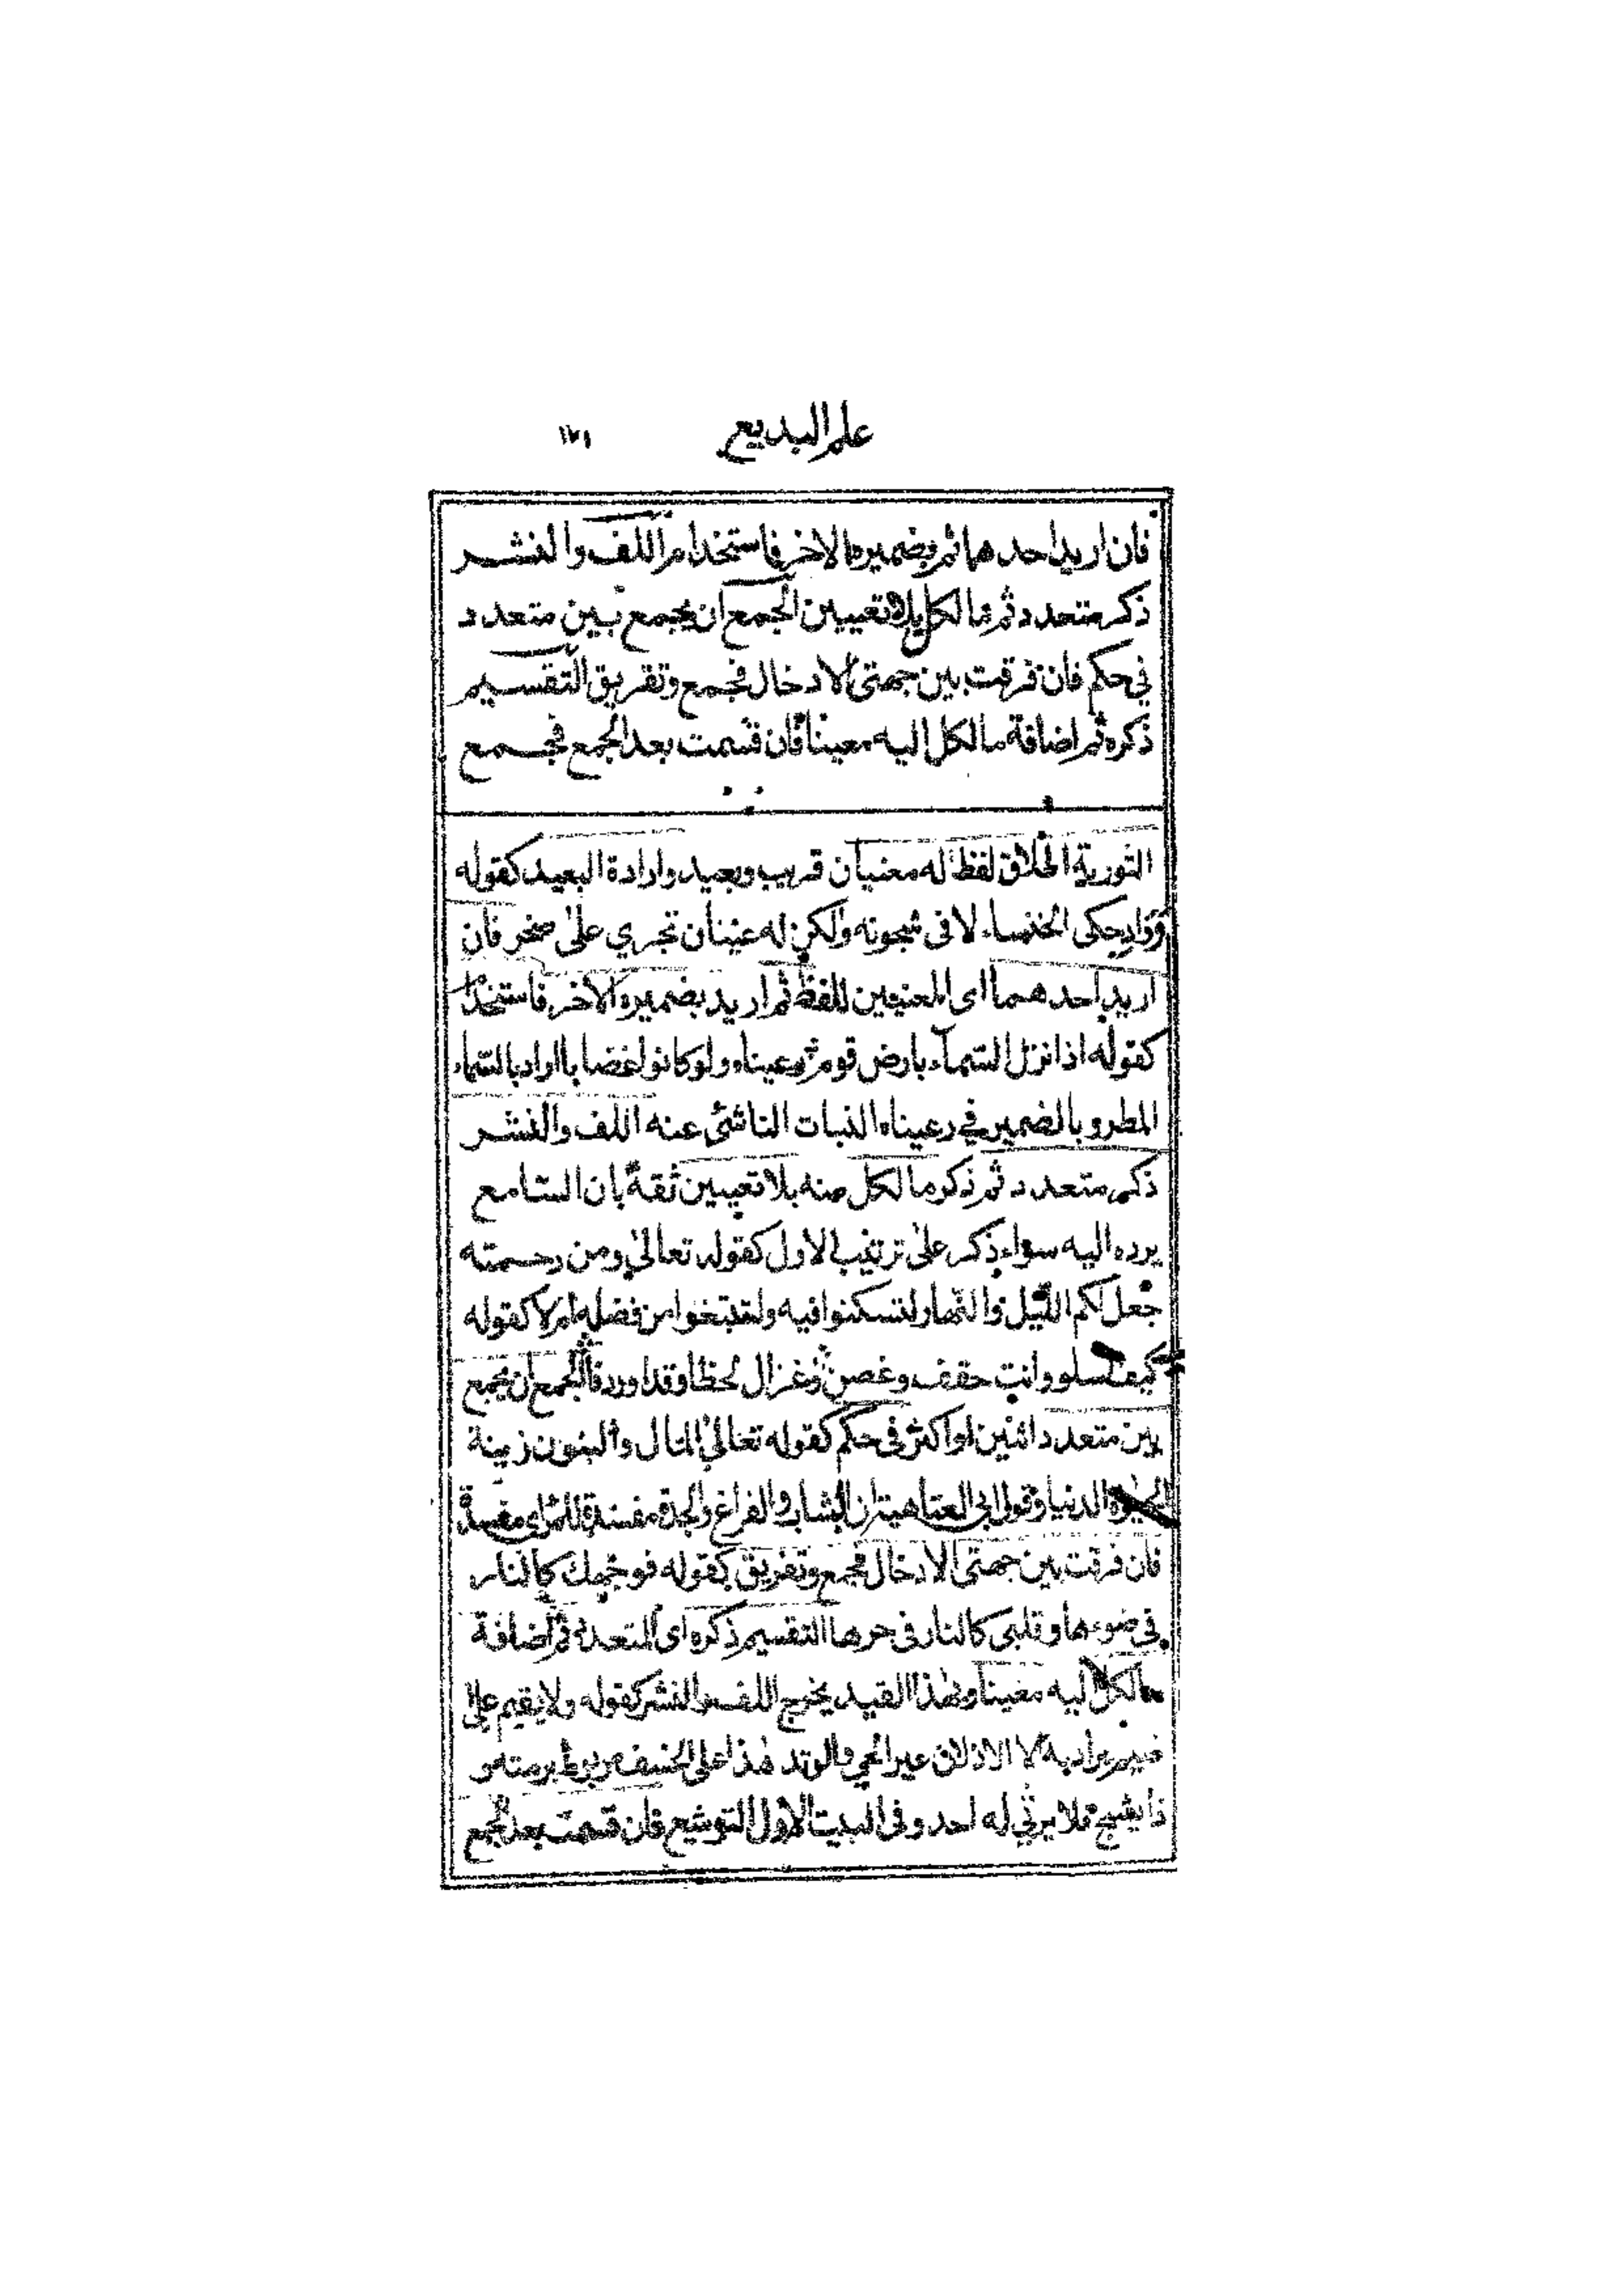 علم البديع ١٧١
فان اريد احدهما ثم بضميره الاخر فاستخدام اللف والنشر
ذكر متعدد ثم ما لكل بلا تعيين الجمع ان يجمع بين متعدد
في حكم فان فرقت بين جهتى الادخال فجمع وتفريق التقسيم
ذكره ثم اضافة ما لكل اليه معينا فان قسمت بعد الجمع فجمع
التورية اطلاق لفظ له معنيان قريب وبعيد وارادة البعيد كقوله
وواد حكى الخنساء لا فى شجونه ولكن له عينان تجري على صخر فان
اريد احدهما اى المعنيين للفظ ثم اريد بضميره الاخر فاستخدام
كقوله اذا نزل السماء بارض قوم رعيناه ولو كانوا غضابا اراد بالسماء
المطر وبالضمير في رعيناه النبات الناشئ عنه اللف والنشر
ذكر متعدد ثم ذكر ما لكل منه بلا تعيين ثقة بان السامع
يرده اليه سواء ذكر على ترتيب الاول كقوله تعالى ومن رحمته
جعل لكم الليل والنهار لتسكنوا فيه ولتبتغوا من فضله ام لا كقوله
كيف اسلو وانت حقف وغصن وغزال لحظا وقدا وردفا الجمع ان يجمع
بين متعدد اثنين او اكثر فى حكم كقوله تعالى المال والبنون زينة
الحيوة الدنيا وقول ابى العتاهية ان الشباب والفراغ والجدة مفسدة للمرء اى مفسدة
فان فرقت بين جهتى الادخال فجمع وتفريق كقوله فوجهك كالنار
فى ضوءها وقلبى كالنار فى حرها التقسيم ذكره اى المتعدد ثم اضافة
ما لكل اليه معينا وبهذا القيد يخرج اللف والنشر كقوله ولا يقيم على
ضيم يراد به الا الاذلان عير الحي والوتد هذا على الخسف مربوط برمته و
ذا يشج فلا يرثي له احد وفى البيت الاول التوشيع فان قسمت بعد الجمع